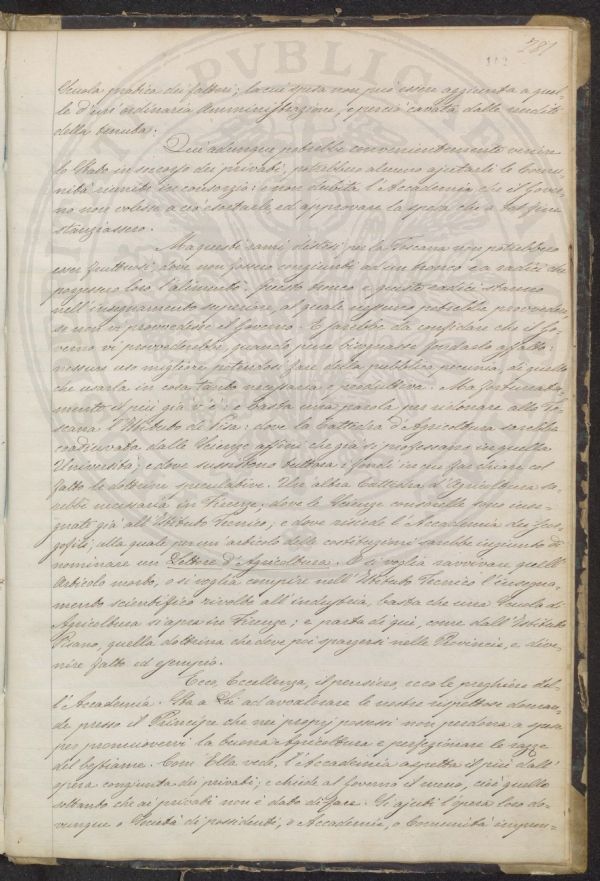 781
112
Scuola pratica dei fattori; la cui spesa non può essere aggiunta a quel-
le d'un'ordinaria Amministrazione, e perciò cavata dalle rendite
della tenuta.
Qui adunque potrebbe convenientemente venire
lo Stato in soccorso dei privati; potrebbero almeno ajutarli le Comu-
nità riunite in consorzio: e non dubita l'Accademia che il Gover-
no non volesse a ciò esortarle ed approvare la spesa che a tal fine
stanziassero.
Ma questi rami distesi per la Toscana non potrebbero
esser fruttuosi, dove non fossero congiunti ad un tronco e a radici che
porgessero loro l'alimento. Questo tronco e queste radici stanno
nell'insegnamento superiore, al quale nessuno potrebbe provvedere,
se non vi provvedesse il Governo. E sarebbe da confidare che il Go-
verno vi provvederebbe, quando pure bisognasse fondarlo affatto:
nessun uso migliore potendosi fare della pubblica pecunia, di quello
che usarla in cosa tanto necessaria e produttiva. Ma fortunata-
mente il più già v'è; e basta una parola per ridonare alla To-
scana l'Istituto di Pisa: dove la Cattedra d'Agricoltura sarebbe
coadiuvata dalle Scienze affini che già si professano in quella
Università; e dove sussistono tuttora i fondi in cui far chiare col
fatto le dottrine speculative. Un'altra Cattedra d'Agricoltura sa-
rebbe necessaria in Firenze; dove le Scienze consorelle sono inse-
gnate già all'Istituto Tecnico; e dove risiede l'Accademia dei Geor-
gofili; alla quale per un'articolo delle costituzioni sarebbe ingiunto di
nominare un Lettore d'Agricoltura. O si voglia ravvivare quell'
Articolo morto, o si voglia compire nell'Istituto Tecnico l'insegna-
mento scientifico rivolto all'industria, basta che una Scuola di
Agricoltura si apra in Firenze; e parta di qui, come dall'Istituto
Pisano, quella dottrina che deve poi spargersi nelle Provincie, e dive-
nire fatto ed esempio.
Ecco, Eccellenza, il pensiero, ecco le preghiere del-
l'Accademia. Sta a Lei ad avvalorare le nostre rispettose doman-
de presso il Principe che nei proprj possessi non perdona a spesa
per promuovervi la buona Agricoltura e perfezionare le razze
del bestiame. Com'Ella vede, l'Accademia aspetta il più dall'
opera congiunta dei privati; e chiede al Governo il meno, cioè quello
soltanto che ai privati non è dato di fare. Si ajuti l'opera loro do-
vunque o Società di possidenti, o Accademie, o Comunità impren-